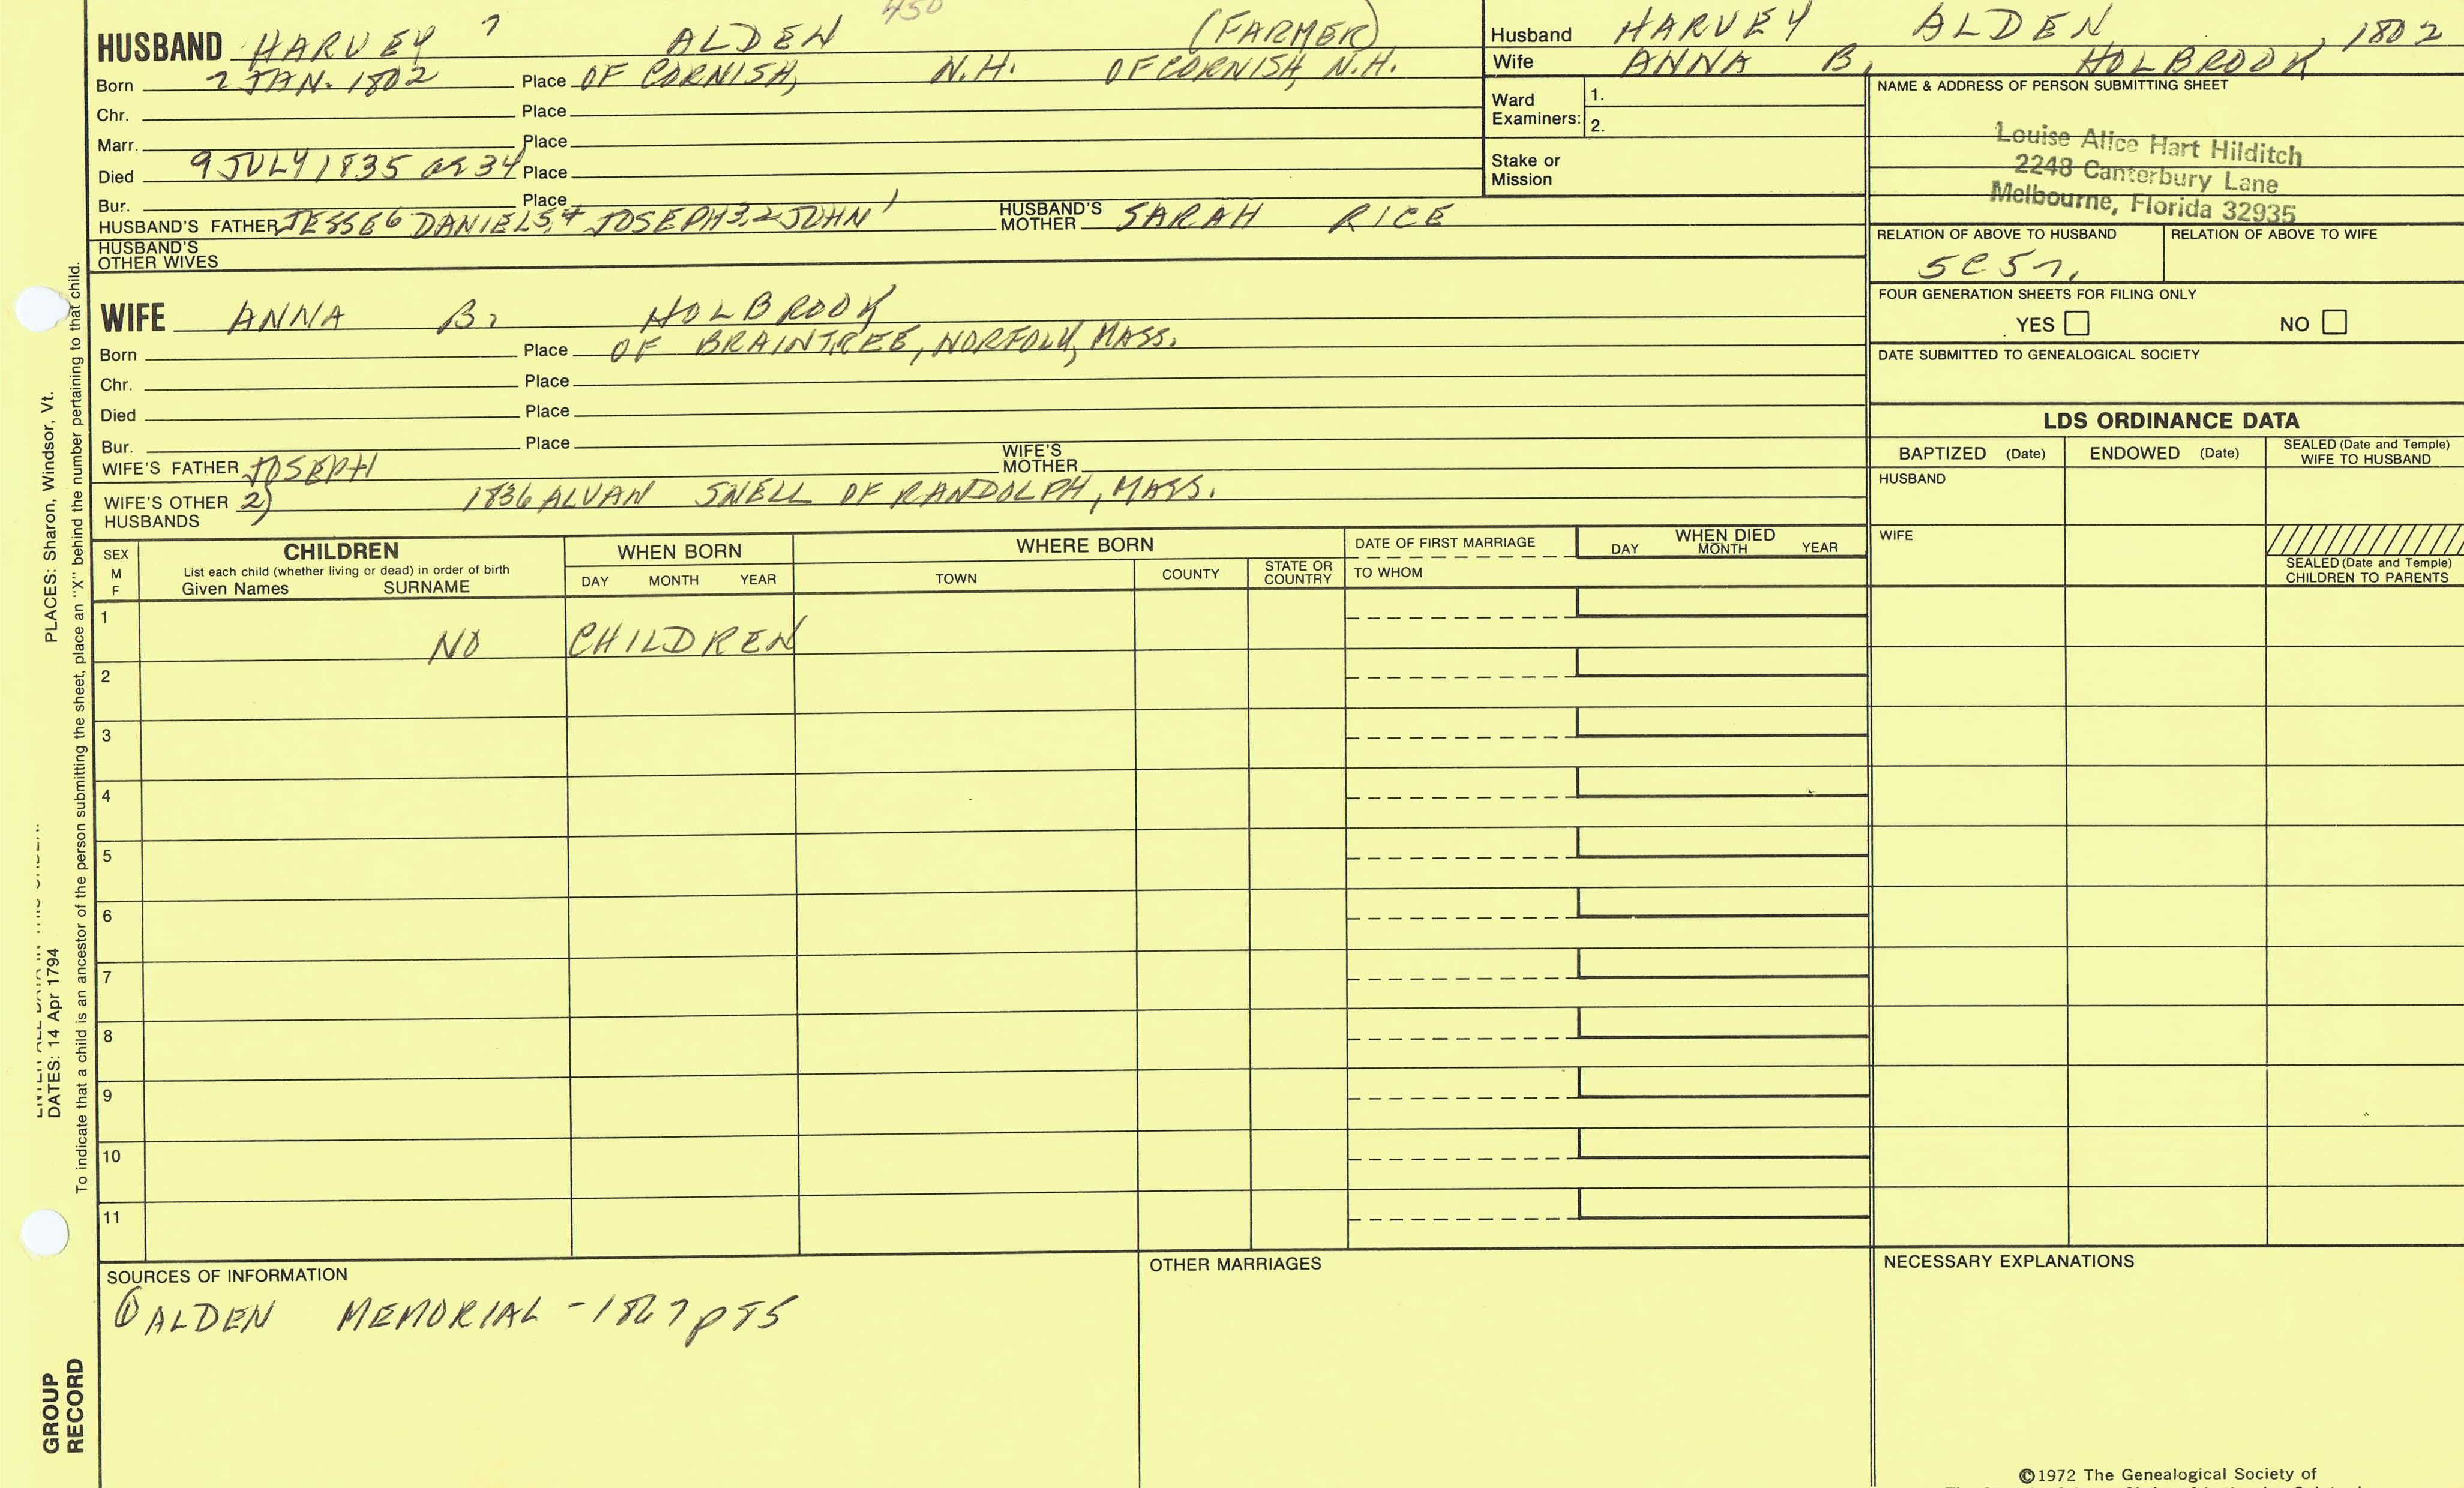 450
HUSBAND HARVEY 7 ALDEN (FARMER)
Born 2 JAN. 1802 Place OF CORNISH, N.H. OF CORNISH, N.H.
Chr. Place
Marr. Place
Died 9 JULY 1835 or 34 Place
Bur. Place
HUSBAND'S FATHER JESSE6 DANIEL5,4 JOSEPH3,2 JOHN1 HUSBAND'S MOTHER SARAH RICE
HUSBAND'S OTHER WIVES
WIFE ANNA B. HOLBROOK
Born Place OF BRAINTREE, NORFOLK, MASS.
Chr. Place
Died Place
Bur. Place
WIFE'S FATHER JOSEPH WIFE'S MOTHER
WIFE'S OTHER HUSBANDS 2) 1836 ALVAN SNELL OF RANDOLPH, MASS.
Husband HARVEY ALDEN, 1802
Wife ANNA B. HOLBROOK
Ward Examiners: 1.
2.
Stake or Mission
NAME & ADDRESS OF PERSON SUBMITTING SHEET
Louise Alice Hart Hilditch
2248 Canterbury Lane
Melbourne, Florida 32935
RELATION OF ABOVE TO HUSBAND RELATION OF ABOVE TO WIFE
5C5r.
FOUR GENERATION SHEETS FOR FILING ONLY
YES NO
DATE SUBMITTED TO GENEALOGICAL SOCIETY
LDS ORDINANCE DATA
BAPTIZED (Date) ENDOWED (Date) SEALED (Date and Temple) WIFE TO HUSBAND
HUSBAND
WIFE
SEALED (Date and Temple) CHILDREN TO PARENTS
SEX M F
CHILDREN
List each child (whether living or dead) in order of birth
Given Names SURNAME
WHEN BORN
DAY MONTH YEAR
WHERE BORN
TOWN COUNTY STATE OR COUNTRY
DATE OF FIRST MARRIAGE
TO WHOM
WHEN DIED
DAY MONTH YEAR
1 NO CHILDREN
2
3
4
5
6
7
8
9
10
11
SOURCES OF INFORMATION
① ALDEN MEMORIAL - 1867 p 85
OTHER MARRIAGES
NECESSARY EXPLANATIONS
©1972 The Genealogical Society of
PLACES: Sharon, Windsor, Vt.
DATES: 14 Apr 1794
To indicate that a child is an ancestor of the person submitting the sheet, place an "X" behind the number pertaining to that child.
GROUP
RECORD